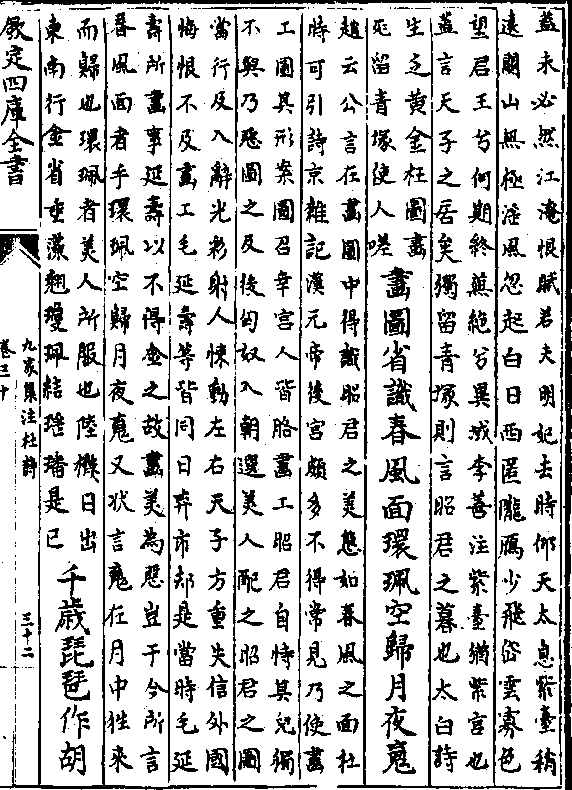 蓋未必然江淹恨賦若夫明妃去時仰天太息紫臺稍
遠關山無極淫風忽起白日西匿隴鴈少飛岱雲寡色
望君王兮何期終蕪絶兮異域李善注紫臺猶紫宮也
蓋言天子之居矣獨留青塚則言昭君之墓也太白詩
生乏黄金枉圖畫
死留青塚使人嗟
畫圖省識春風面環珮空歸月夜䰟
趙云公言在畫圖中得識昭君之美態如春風之面杜
時可引詩京雜記漢元帝後宮頗多不得常見乃使畫
工圖其形案圖召幸宮人皆賂畫工昭君自恃其皃獨
不與乃惡圖之及後匈奴入朝選美人配之昭君之圖
當行及入辭光彩射人悚動左右天子方重失信外國
悔恨不及畫工毛延夀等皆同日弃市却是當時毛延
夀所畫事延夀以不得金之故畫美為惡豈于今所言
春風面者乎環珮空歸月夜䰟又狀言䰟在月中徃來
而歸也環珮者美人所服也陸機日出
東南行金省垂藻翹瓊珮結瑤璠是已
千歳琵琶作胡
欽定四庫全書
九家集注杜詩
卷三十
三十二